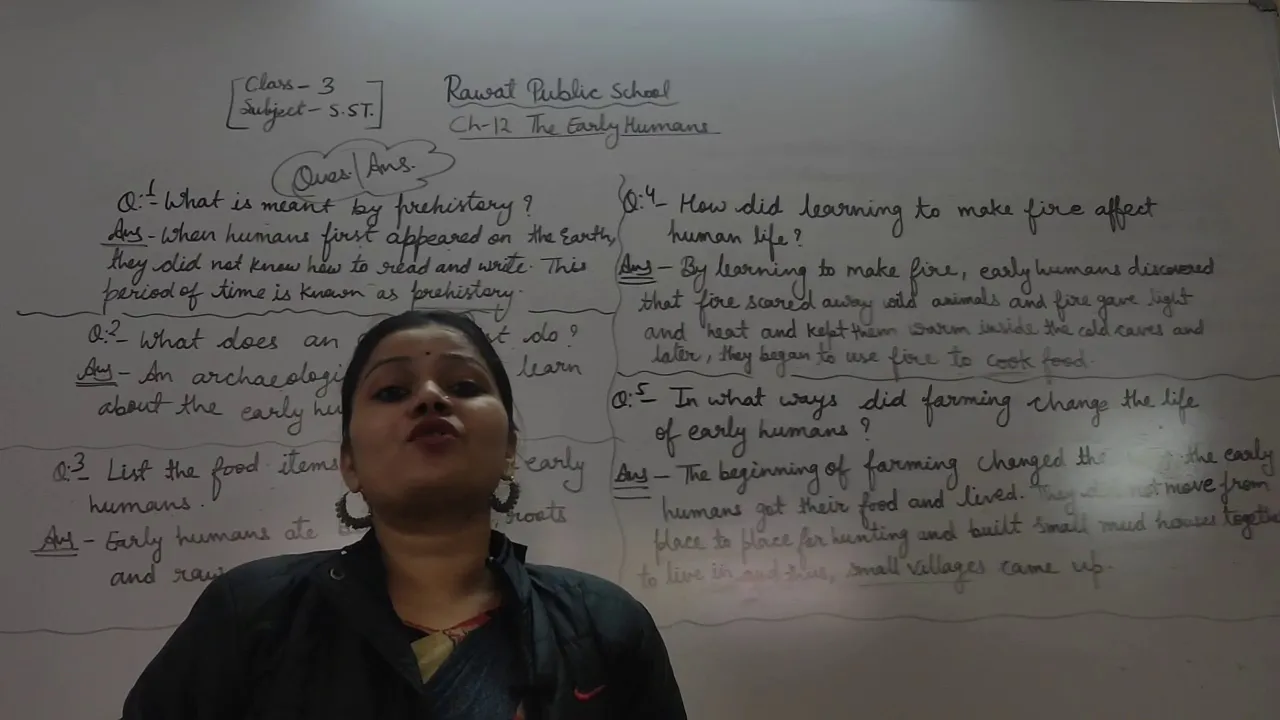 Class - 3
Subject - S.ST.
Rawat Public School
Ch-12 The Early Humans
Ques./Ans.
Q:1- What is meant by prehistory?
Ans - When humans first appeared on the Earth,
they did not know how to read and write. This
period of time is known as prehistory.
Q:2- What does an do?
Ans - An learn
about the early
Q:3- List the food items early
humans.
Ans - Early humans ate roots
and raw
Q:4- How did learning to make fire affect
human life?
Ans - By learning to make fire, early humans discovered
that fire scared away wild animals and fire gave light
and heat and kept them warm inside the cold caves and
later, they began to use fire to cook food.
Q:5- In what ways did farming change the life
of early humans?
Ans - The beginning of farming changed the the early
humans got their food and lived. They did not move from
place to place for hunting and built small mud houses together
to live in and thus, small villages came up.